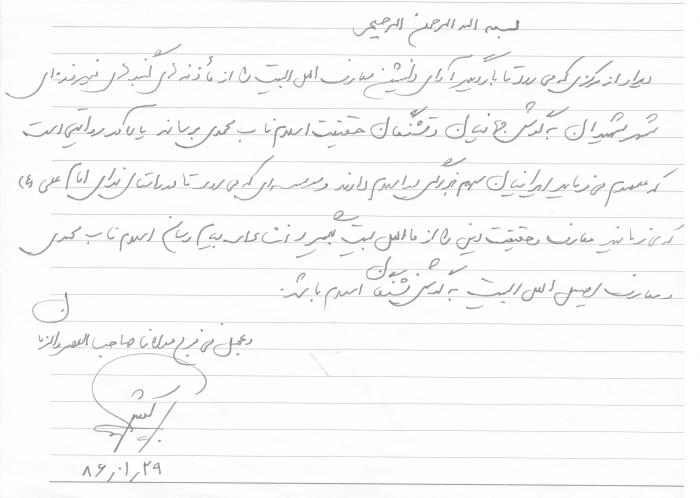 بسم الله الرحمن الرحیم
دیدار از مرکزی که می رود تا بار دیگر آوای دلنشین معارف اهل البیت را از مأذنه های گنبدهای فیروزه ای
شهر شهیدان به گوش جهانیان و تشنگان حقیقت اسلام ناب محمدی برساند یادآور روایتی است
که معصوم می فرماید ایرانیان سهم بزرگی در اسلام دارند و مدرسه ای که می رود تا در راستای ندای امام علی (ع)
که می فرمایند معارف و حقیقت دین را از ما اهل بیت بگیرید انشاءالله پیام رسان اسلام ناب محمدی
و معارف اصیل اهل البیت به گوش تشنگان اسلام باشد.
و عجل فی فرج مولانا صاحب العصر والزمان
۸۶/۰۱/۲۹